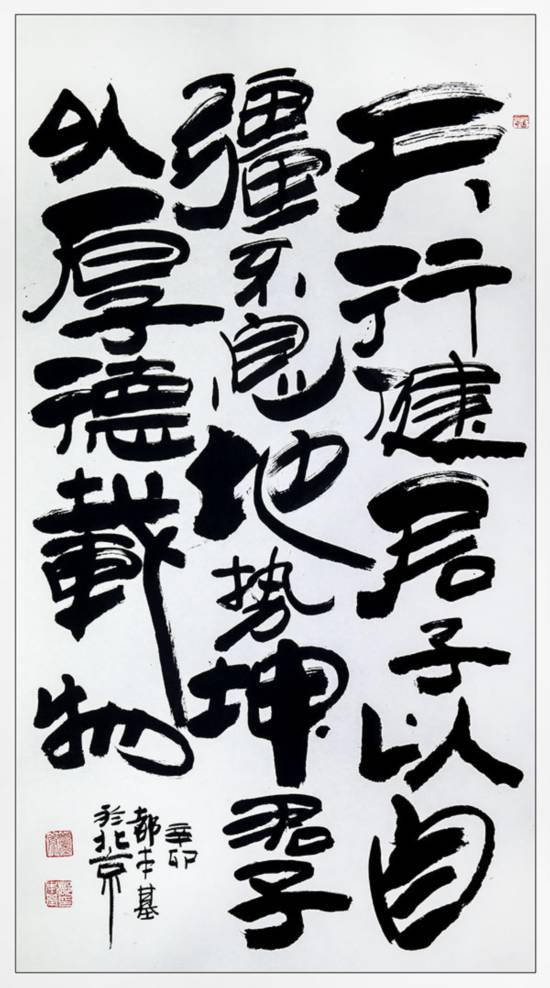 天行健君子以自
彊不息地势坤君子
以厚德载物
辛卯
都本基
於北京